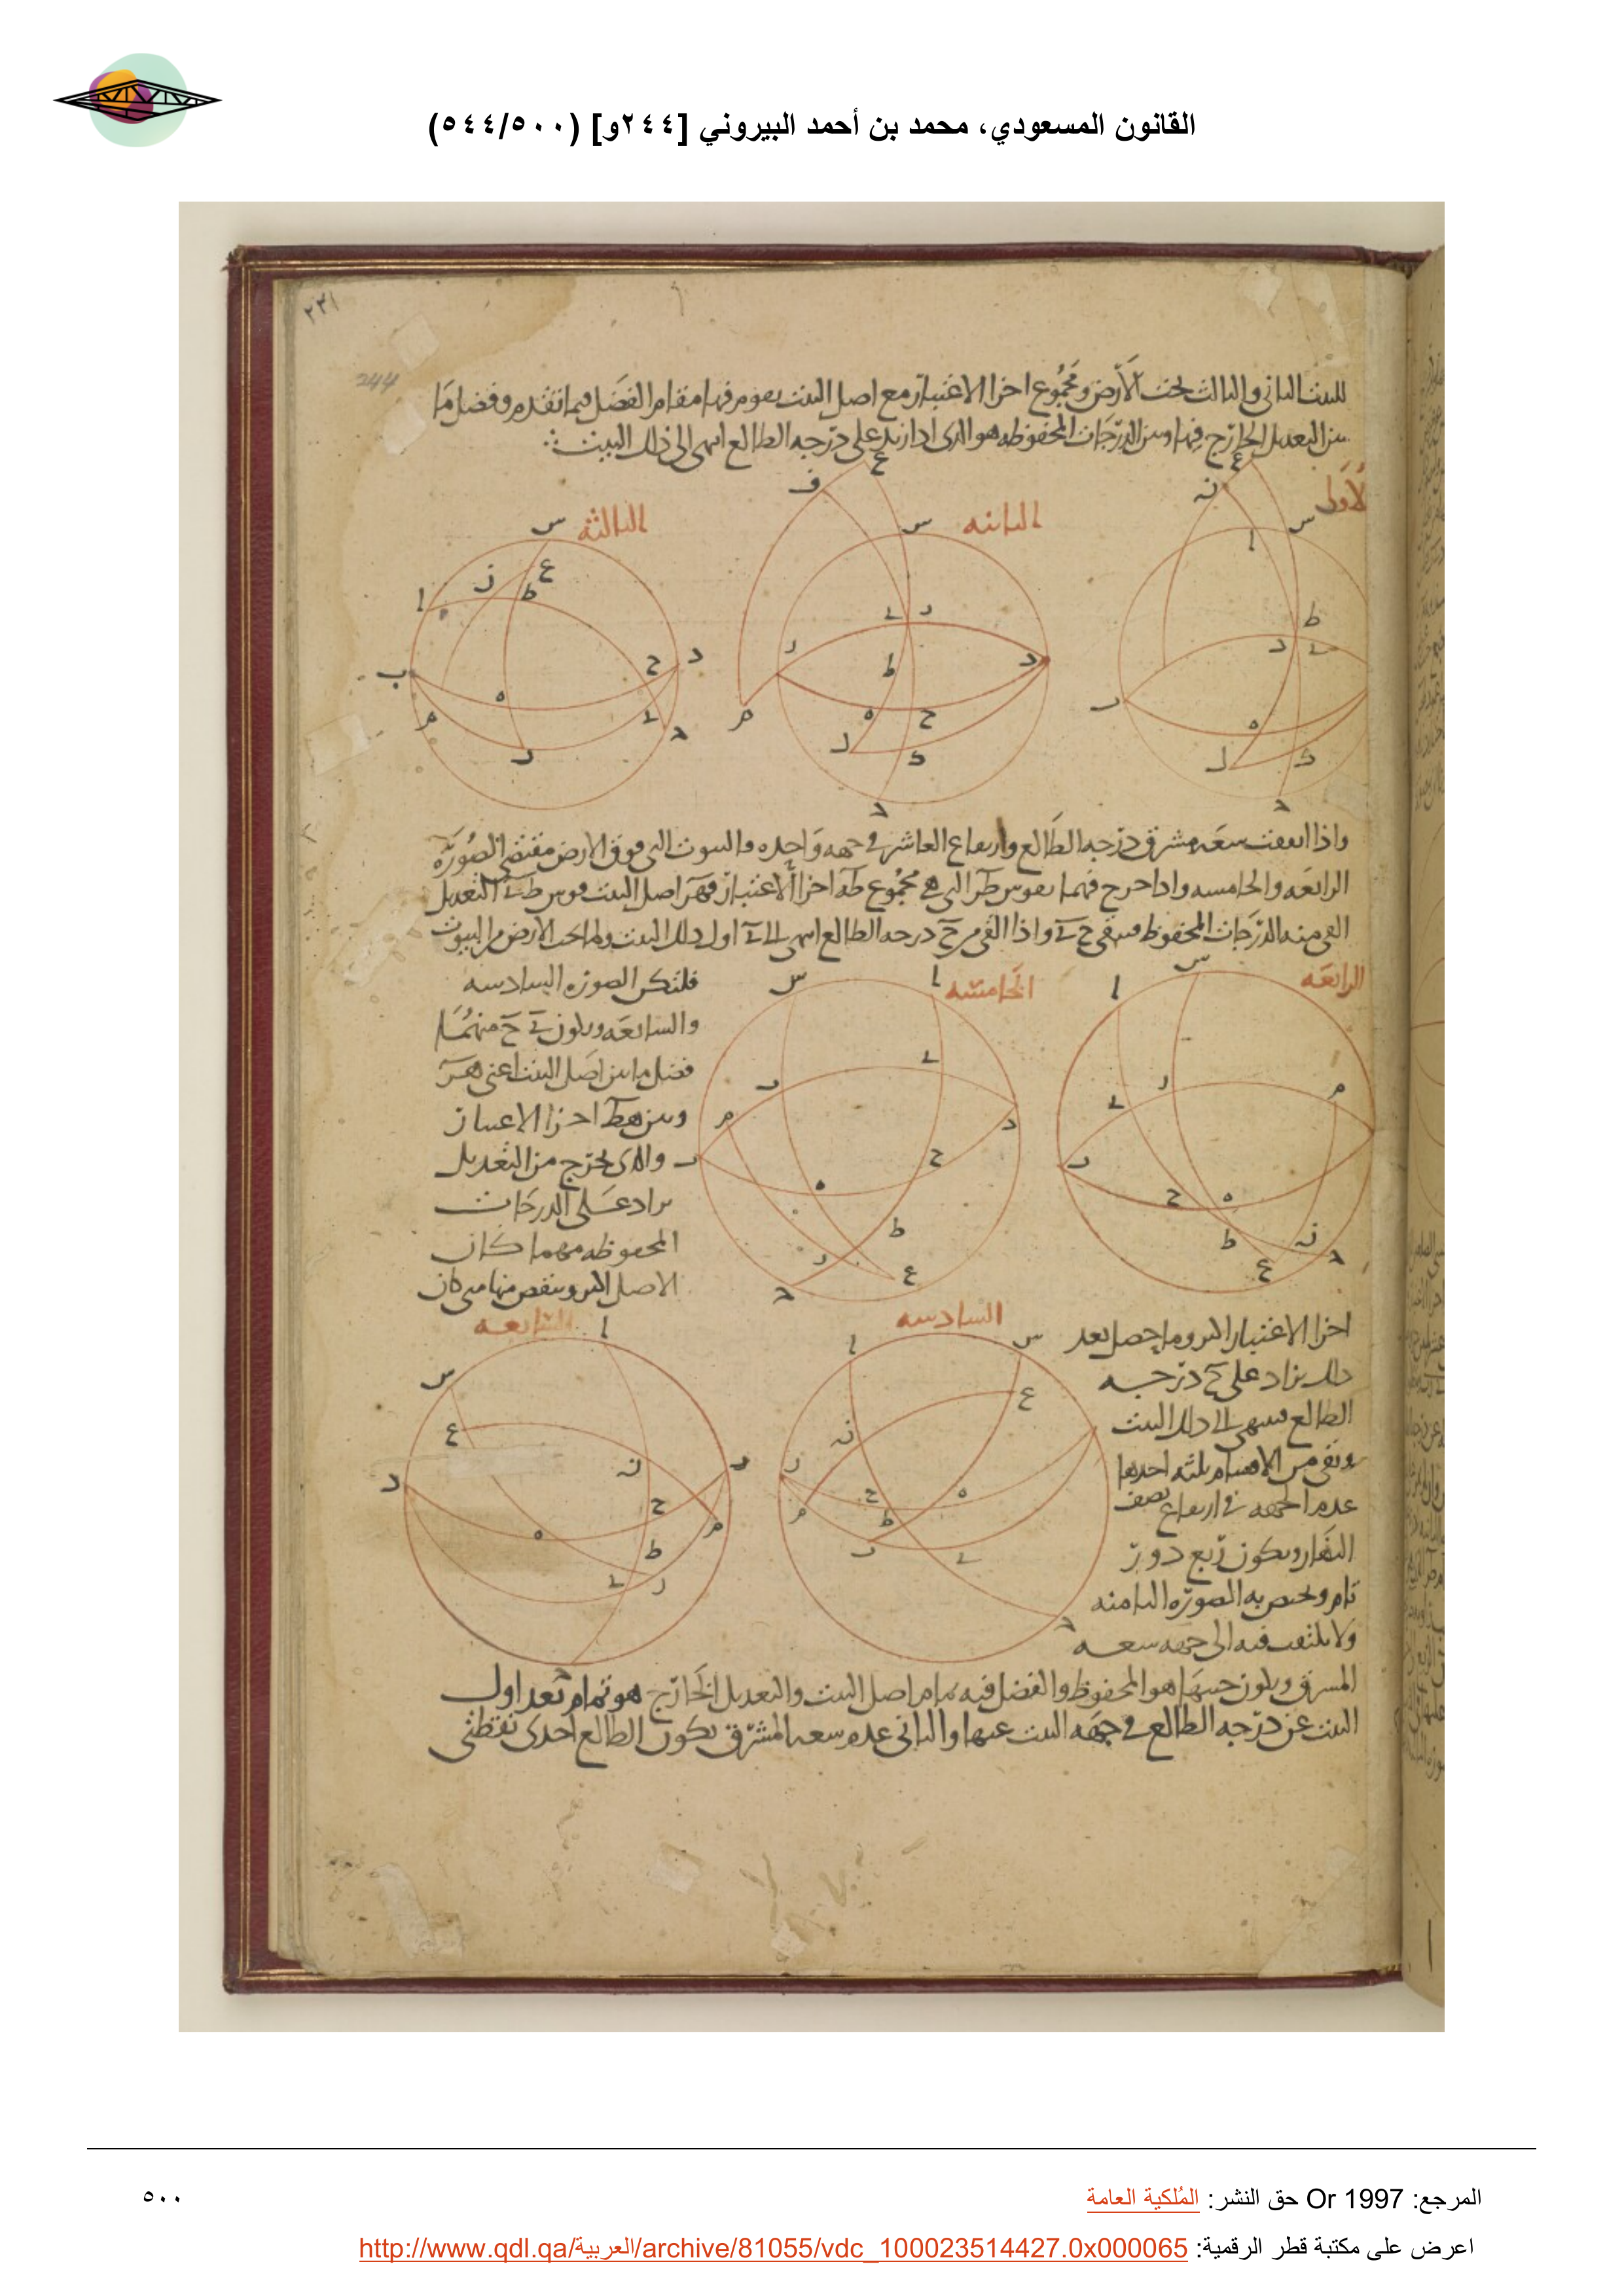 القانون المسعودي، محمد بن أحمد البيروني [٢٤٤و] (٥٤٤/٥٠٠)
٢٣١
244
للبيت الثاني والثالث تحت الأرض ومجموع اجزا الاعتبار مع اصل البيت يقوم فيها مقام الفضل فيما تقدم وفضل ما
بين التعديل الخارج فيها وبين الدرجات المحفوظه هو الذى اذا زيد على درجه الطالع انتهى الى ذلك البيت
الاولى
الثانيه
الثالثه
واذا اتفقت سعه مشرق درجه الطالع وارتفاع العاشر فى جهه واحده والبيوت التى فوق الارض فمقتضى الصوره
الرابعه والخامسه واذا خرج فيهما بقوس التى هى مجموع اجزا الاعتبار اصل البيت قوس التعديل
القى منه الدرجات المحفوظه فيبقى واذا القى من درجه الطالع انتهى الى اول ذلك البيت ولما تحت الارض من البيوت
الرابعه
الخامسه
فلتكن الصوره السادسه
والسابعه ويكون منهما
فضل ما بين اصل البيت اعنى
وبين اجزا الاعتبار
والذى يخرج من التعديل
يزاد على الدرجات
المحفوظه مهما كان
الاصل اكبر وينقص منها متى كان
السادسه
السابعه
اجزا الاعتبار اكبر وما حصل بعد
ذلك يزاد على درجه
الطالع فينتهى الى ذلك البيت
وبقى من الاقسام ثلثه احدها
عدم الجهه فى ارتفاع نصف
النهار ويكون ربع دور
تام ويختص به الصوره الثامنه
ولا يلتفت فيه الى جهه سعه
المشرق ويكون جيبها هو المحفوظ والفضل فيه تمام اصل البيت والتعديل الخارج هو تمام بعد اول
البيت عن درجه الطالع فى جهه البيت عنها والثانى عدم سعه المشرق بكون الطالع احدى نقطتى
المرجع: Or 1997 حق النشر: المُلكية العامة
٥٠٠
اعرض على مكتبة قطر الرقمية: http://www.qdl.qa/العربية/archive/81055/vdc_100023514427.0x000065